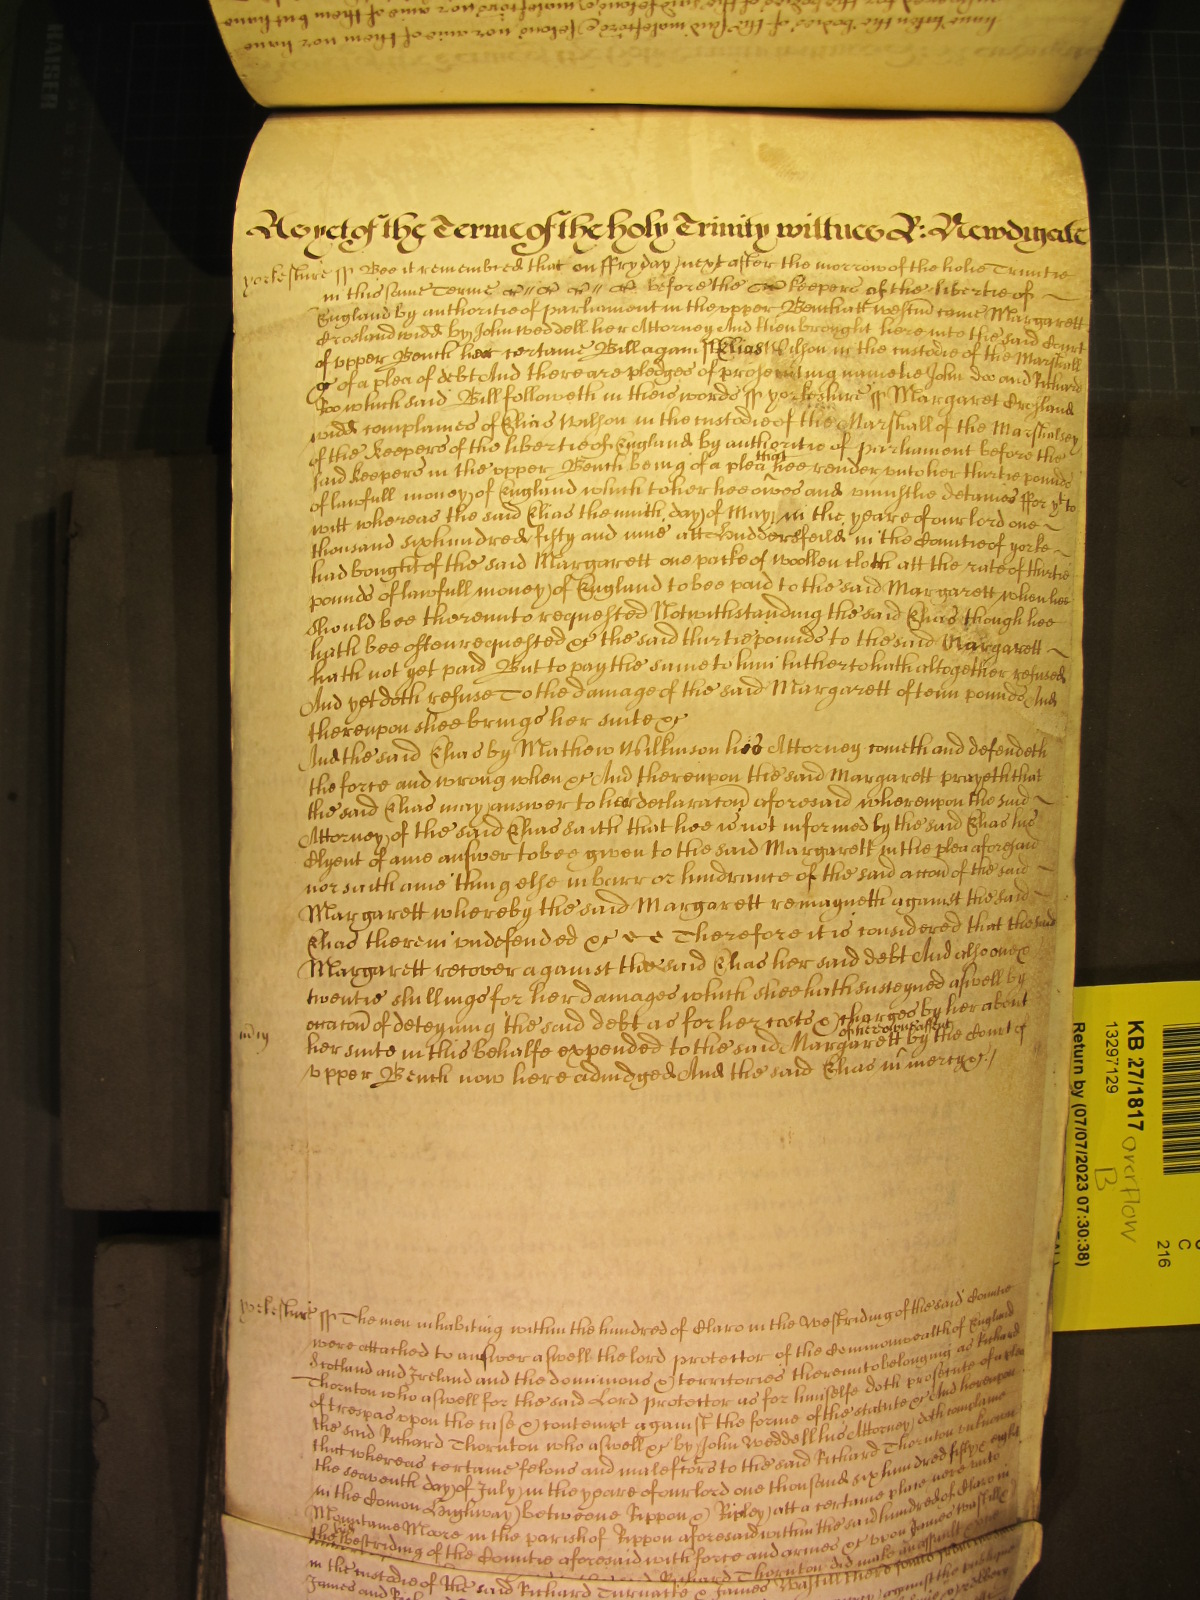 have taken the bodies of the said malefactors & felons nor anie of them nor have
of them but have
As yet of the Terme of the holy Trinity wittnes R: Newdigate
yorkeshire ss Bee it remembred that on ffryday next after the morrow of the holie Trinitie
in this same Terme before the keepers of the libertie of
England by authoritie of parliament in the upper Bench att westm̄ came Margarett
Crosland widd by John Weddell her Attorney And then brought here into the said Court
of upper Bench her certaine Bill against Elias Wilson in the custodie of the Marshall
&c of a plea of debt And there are pledges of prosecuting namelie John doo and Richard
Roo which said Bill followeth in theis words ss yorkeshire ss Margaret Crosland
widd complaines of Elias Wilson in the custodie of the Marshall of the Marshalsey
of the Keepers of the libertie of England by authoritie of parliament before the
said Keepers in the upper Bench being of a plea that hee render unto her thirtie pounds
of lawfull money of England which to her hee owes and uniustlie detaines ffor yt to
witt whereas the said Elias the ninth day of May in the yeare of our lord one
thousand six hundred fifty and nine att Huddersfeild in the Countie of yorke
had bought of the said Margarett one packe of woollen cloth att the rate of thirtie
pounds of lawfull money of England to bee paid to the said Margarett when hee
should bee thereunto requested Notwithstanding the said Elias though hee
hath bee often requested &c the said thirtie pounds to the said Margarett
hath not yet paid But to pay the same to him hitherto hath altogether refused
And yet doth refuse To the damage of the said Margarett of tenn pounds And
thereupon shee brings her suite &c
And the said Elias by Mathew Wilkinson his Attorney cometh and defendeth
the force and wrong when &c And thereupon the said Margarett prayeth that
the said Elias may answer to her declaracōn aforesaid whereupon the said
Attorney of the said Elias saith that hee is not informed by the said Elias his
Clyent of anie answer to bee given to the said Margarett in the plea aforesaid
nor saith anie thing else in barr or hindrance of the said accōn of the said
Margarett whereby the said Margarett remayneth against the said
Elias therein undefended &c Therefore it is considered that the said
Margarett recover against the said Elias her said debt And also
twentie shillings for her damages which shee hath susteyned aswell by
occacōn of deteyning the said debt as for her costs & charges by her about
of her owne assent
mercy
her suite in this behalfe expended to the said Margarett by the Court of
upper Bench now here adiudged And the said Elias in mercy &c
yorkeshire ss The men inhabiting within the hundred of Claro in the Westriding of the said Countie
were attached to answer aswell the lord protector of the Commonwealth of England
Scotland and Ireland and the dominions & territories thereunto belonging as Richard
Thornton who aswell for the said Lord protector as for himselfe doth prosecute of a plea
of trespas upon the case & contempt against the forme of the statute &c And hereupon
the said Richard Thornton who aswell &c by John Weddell his Attorney doth complaine
that whereas certaine felons and malefactors to the said Richard Thornton unknown
the seaventh day of July in the yeare of our lord one thousand six hundred fifty & eight
in the Comon highway betweene Rippon & Ripley att a certaine place neere unto
Mountaine Moore in the parish of Rippon aforesaid within the said hundred of Claro in
the Westriding of the Countie aforesaid with force and armes &c upon James Wastill
Richard Thornton did make an assault
in the custodie of the said Richard Turnatle & James Wastill
James and
KB 27/1817
13297129
Return by (07/07/2023 07:30:38)
overflow
B
C
216